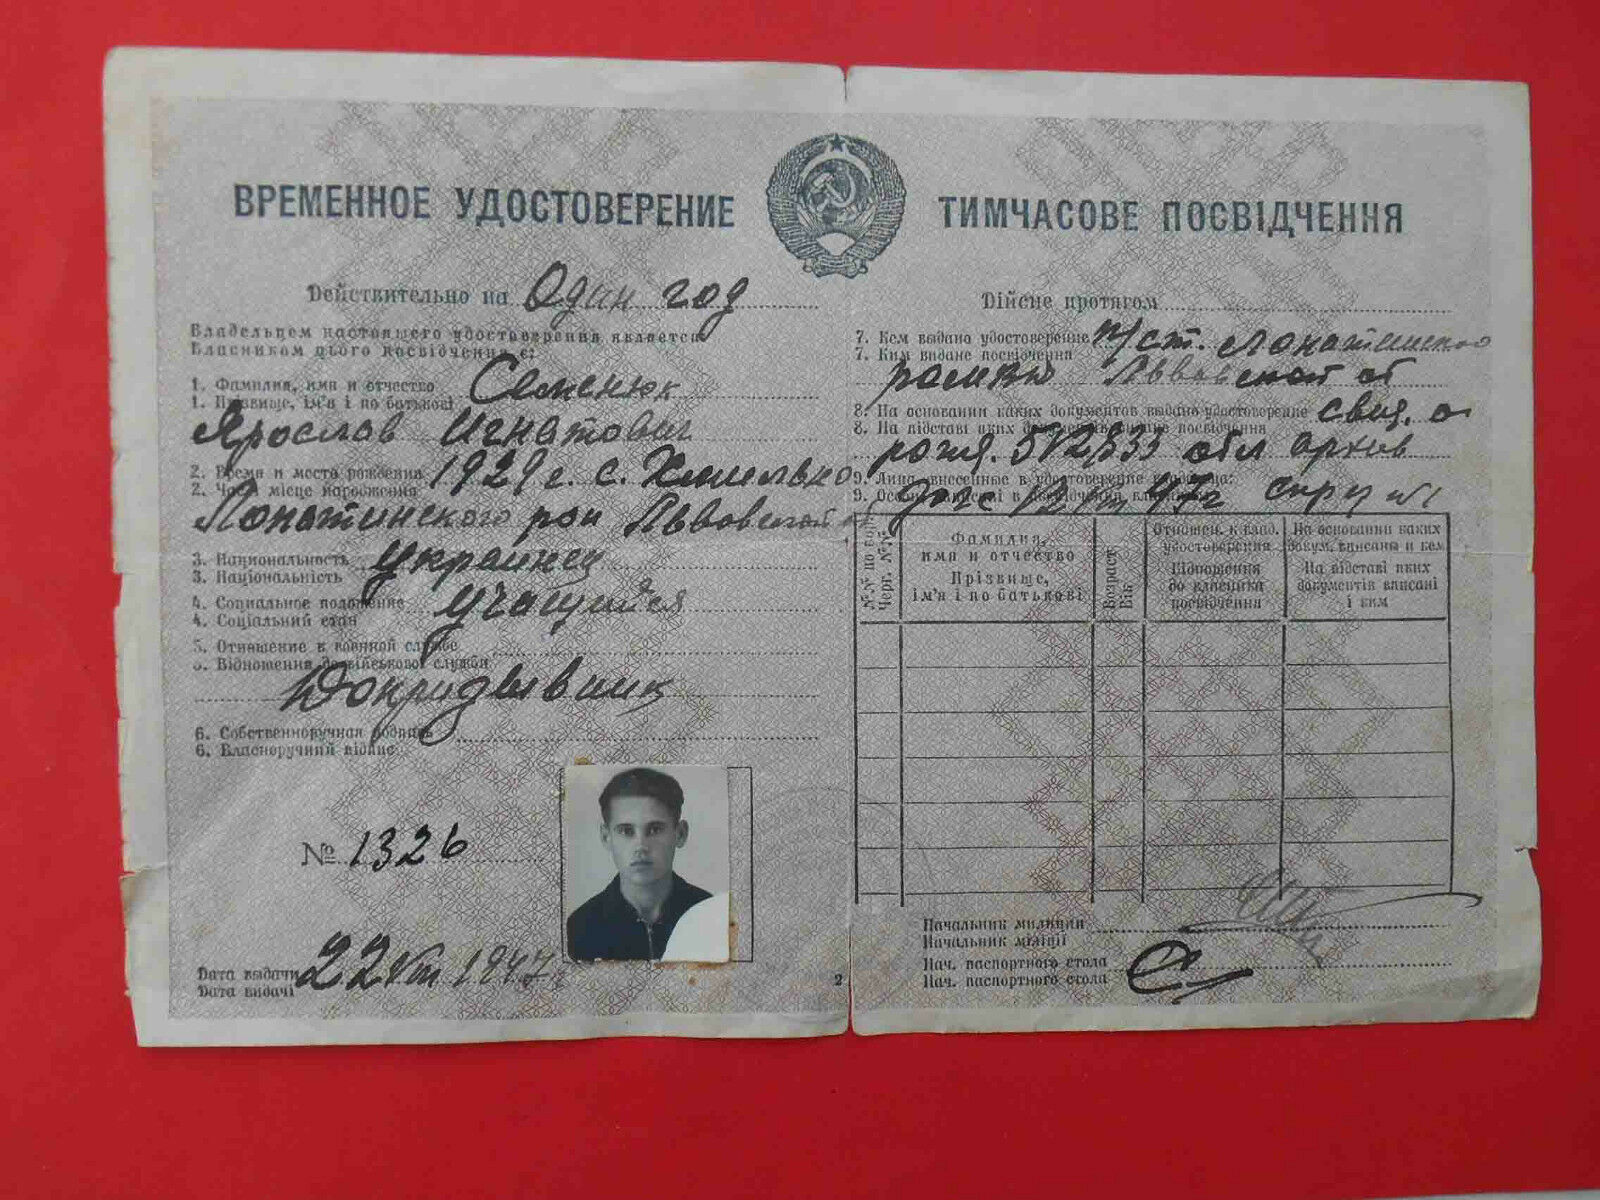 ВРЕМЕННОЕ УДОСТОВЕРЕНИЕ
Действительно на Один год
Владельцем настоящего удостоверения является
Власником цього посвідчення є:
1. Фамилия, имя и отчество Семенюк
1. Прізвище, ім'я і по батькові
Ярослав Игнатович
2. Время и место рождения 1929 г. с. Хмильно
2. Час і місце народження
Лопатинского рай Львовской об
3. Национальность украинец
3. Національність
4. Социальное положение учащийся
4. Соціальний стан
5. Отношение к военной службе
5. Відношення до військової служби
Допризывник
6. Собственноручная подпись
6. Власноручний підпис
№ 1326
Дата выдачи 22 VIII 1947 г
Дата видачі
2
ТИМЧАСОВЕ ПОСВІДЧЕННЯ
Дійсне протягом
7. Кем выдано удостоверение п/ст. Лопатинского
7. Ким видане посвідчення
Львовской об
8. На основании каких документов выдано удостоверение свид. о
8. На підставі яких документів видане посвідчення
рожд. обл архив
9. Лица, внесенные в удостоверение владельца:
9. Особи, вписані в посвідчення власника:
№№ по пор.
Черг. №№
Фамилия,
имя и отчество
Прізвище,
ім'я і по батькові
Возраст
Вік
Отношен. к влад.
удостоверения
Відношення
до власника
посвідчення
На основании каких
докум. вписаны и кем
На підставі яких
документів вписані
і ким
Начальник милиции
Начальник міліції
Нач. паспортного стола
Нач. паспортного стола